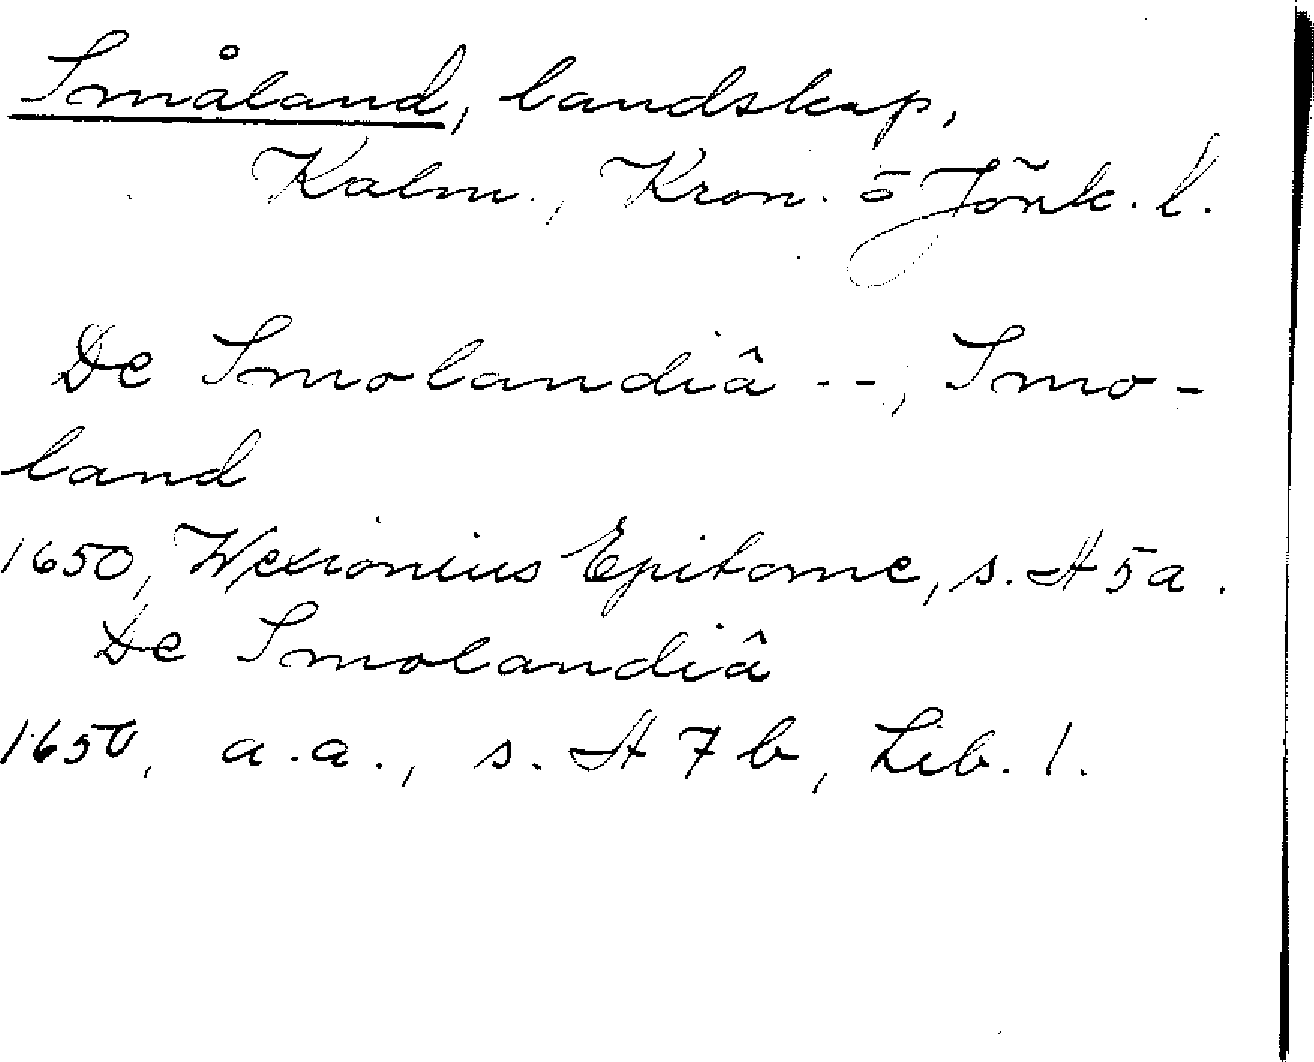 Småland, landskap,
Kalm., Kron. o Jönk. l.
De Smolandiâ --, Smo-
land
1650, Wexionius Epitome, s. A 5 a.
De Smolandiâ
1650, a.a., s. A 7 b, Lib. 1.